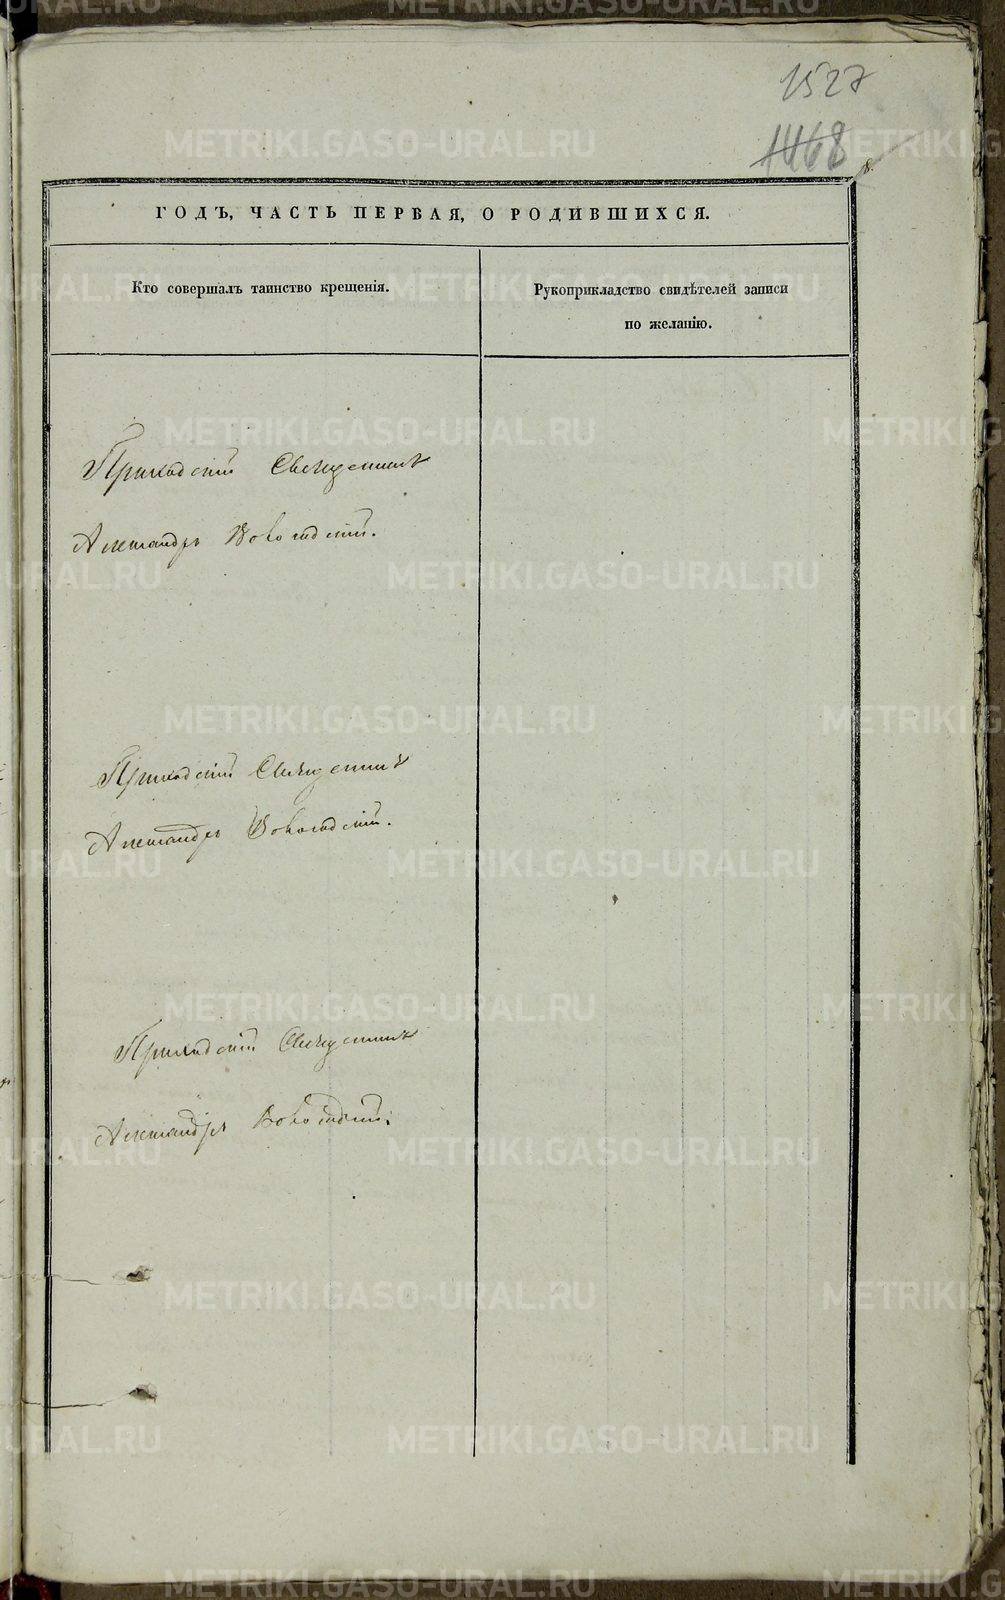 1527
1468
ГОДЪ, ЧАСТЬ ПЕРВАЯ, О РОДИВШИХСЯ.
Кто совершалъ таинство крещенія.
Рукоприкладство свидѣтелей записи
по желанію.
Приходскій Священникъ
Александръ Вологодскій.
Приходскій Священникъ
Александръ Вологодскій.
Приходскій Священникъ
Александръ Вологодскій.
METRIKI.GASO-URAL.RU